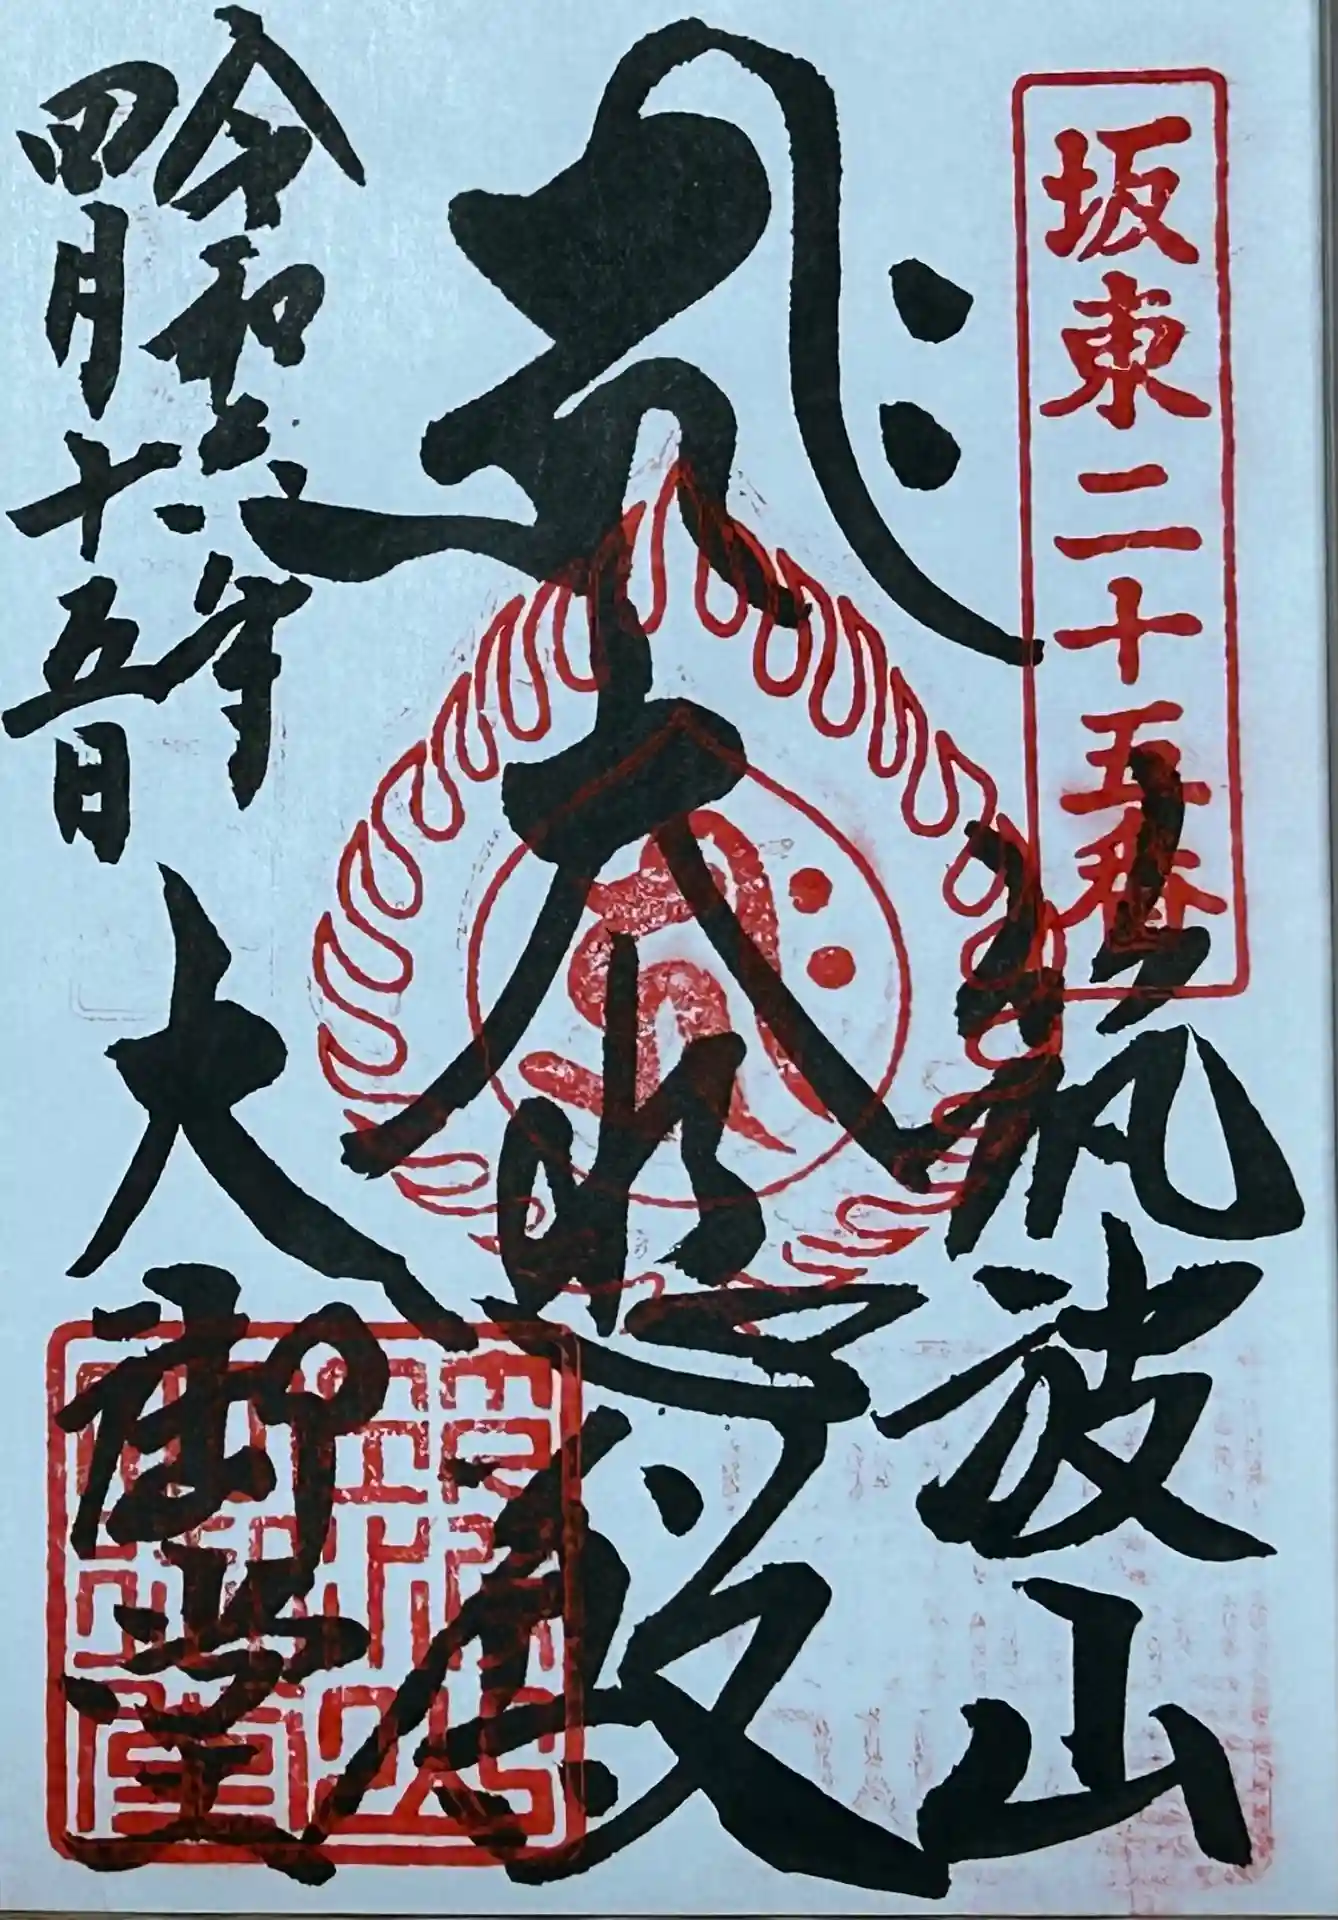 坂東二十五番
筑波山
𑖮𑖿𑖨𑖱𑖾
大悲殿
大御堂
令和六年
四月十五日